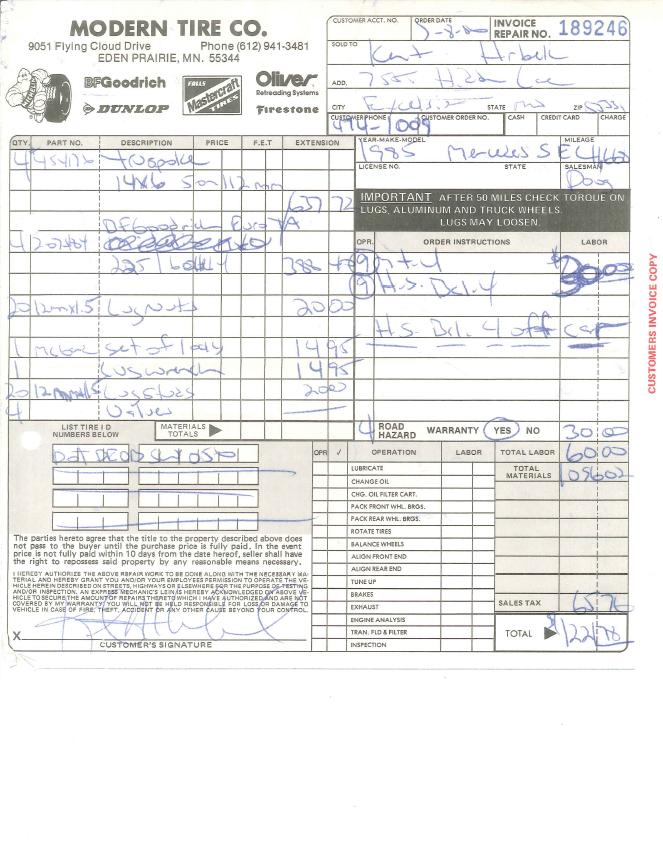 MODERN TIRE CO.
9051 Flying Cloud Drive Phone (612) 941-3481
EDEN PRAIRIE, MN. 55344
BFGoodrich
FALLS Mastercraft TIRES
Oliver Retreading Systems
DUNLOP
Firestone
CUSTOMER ACCT. NO.
ORDER DATE
INVOICE REPAIR NO. 189246
SOLD TO
Kent
ADD.
CITY STATE ZIP
CUSTOMER PHONE CUSTOMER ORDER NO. CASH CREDIT CARD CHARGE
474-1009
QTY. PART NO. DESCRIPTION PRICE F.E.T EXTENSION
YEAR-MAKE-MODEL MILEAGE
1985
LICENSE NO. STATE SALESMAN
Doug
4
14x6 5 on 112 mm
637 72
IMPORTANT AFTER 50 MILES CHECK TORQUE ON LUGS, ALUMINUM AND TRUCK WHEELS. LUGS MAY LOOSEN.
BFGoodrich Euro T/A
4
OPR. ORDER INSTRUCTIONS LABOR
388
H.S. Bal. 4
20 12mmx1.5 Lug Nuts 20 00
H.S. Bal. 4 off car
1 set of 14 95
1 Lug wrench 14 95
20 12mmx1.5 Lug Studs 20 00
4 Valves
LIST TIRE I D NUMBERS BELOW
MATERIALS TOTALS
4 ROAD HAZARD WARRANTY YES NO 30 00
OPR ✓ OPERATION LABOR TOTAL LABOR 60 00
LUBRICATE TOTAL MATERIALS 1095 02
CHANGE OIL
CHG. OIL FILTER CART.
PACK FRONT WHL. BRGS.
PACK REAR WHL. BRGS.
ROTATE TIRES
BALANCE WHEELS
ALIGN FRONT END
ALIGN REAR END
TUNE UP
BRAKES
EXHAUST SALES TAX 65 76
ENGINE ANALYSIS
TRAN. FLD & FILTER TOTAL
INSPECTION
The parties hereto agree that the title to the property described above does
not pass to the buyer until the purchase price is fully paid. In the event
price is not fully paid within 10 days from the date hereof, seller shall have
the right to repossess said property by any reasonable means necessary.
I HEREBY AUTHORIZE THE ABOVE REPAIR WORK TO BE DONE ALONG WITH THE NECESSARY MA-
TERIAL AND HEREBY GRANT YOU AND/OR YOUR EMPLOYEES PERMISSION TO OPERATE THE VE-
HICLE HEREIN DESCRIBED ON STREETS, HIGHWAYS OR ELSEWHERE FOR THE PURPOSE OF TESTING
AND/OR INSPECTION. AN EXPRESS MECHANIC'S LIEN IS HEREBY ACKNOWLEDGED ON ABOVE VE-
HICLE TO SECURE THE AMOUNT OF REPAIRS THERETO WHICH I HAVE AUTHORIZED AND ARE NOT
COVERED BY MY WARRANTY. YOU WILL NOT BE HELD RESPONSIBLE FOR LOSS OR DAMAGE TO
VEHICLE IN CASE OF FIRE, THEFT, ACCIDENT OR ANY OTHER CAUSE BEYOND YOUR CONTROL.
X
CUSTOMER'S SIGNATURE
CUSTOMERS INVOICE COPY